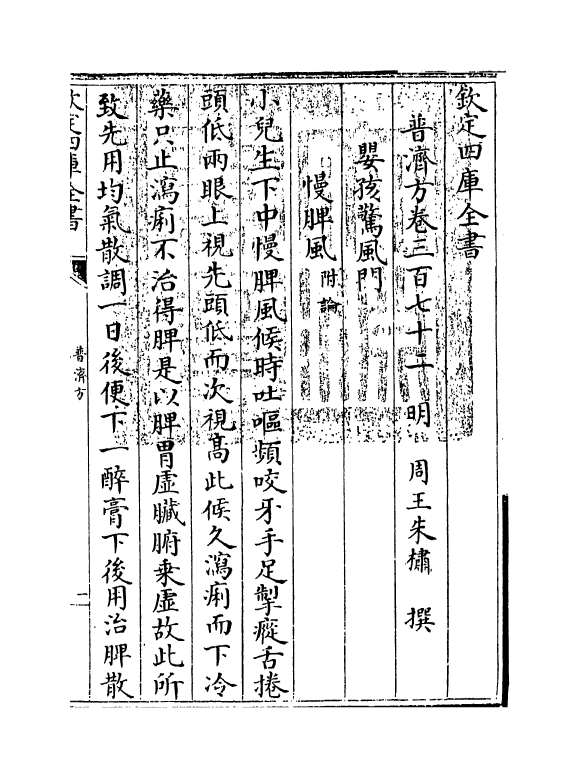 欽定四庫全書
普濟方卷三百七十一 明 周王朱橚 撰
嬰孩驚風門
慢脾風附論
小兒生下中慢脾風候時吐嘔頻咬牙手足掣瘲舌捲
頭低兩眼上視先頭低而次視髙此候久瀉痢而下冷
藥只止瀉痢不治得脾是以脾胃虛臟腑乗虛故此所
致先用均氣散調一日後便下一醉膏下後用治脾散
欽定四庫全書
普濟方